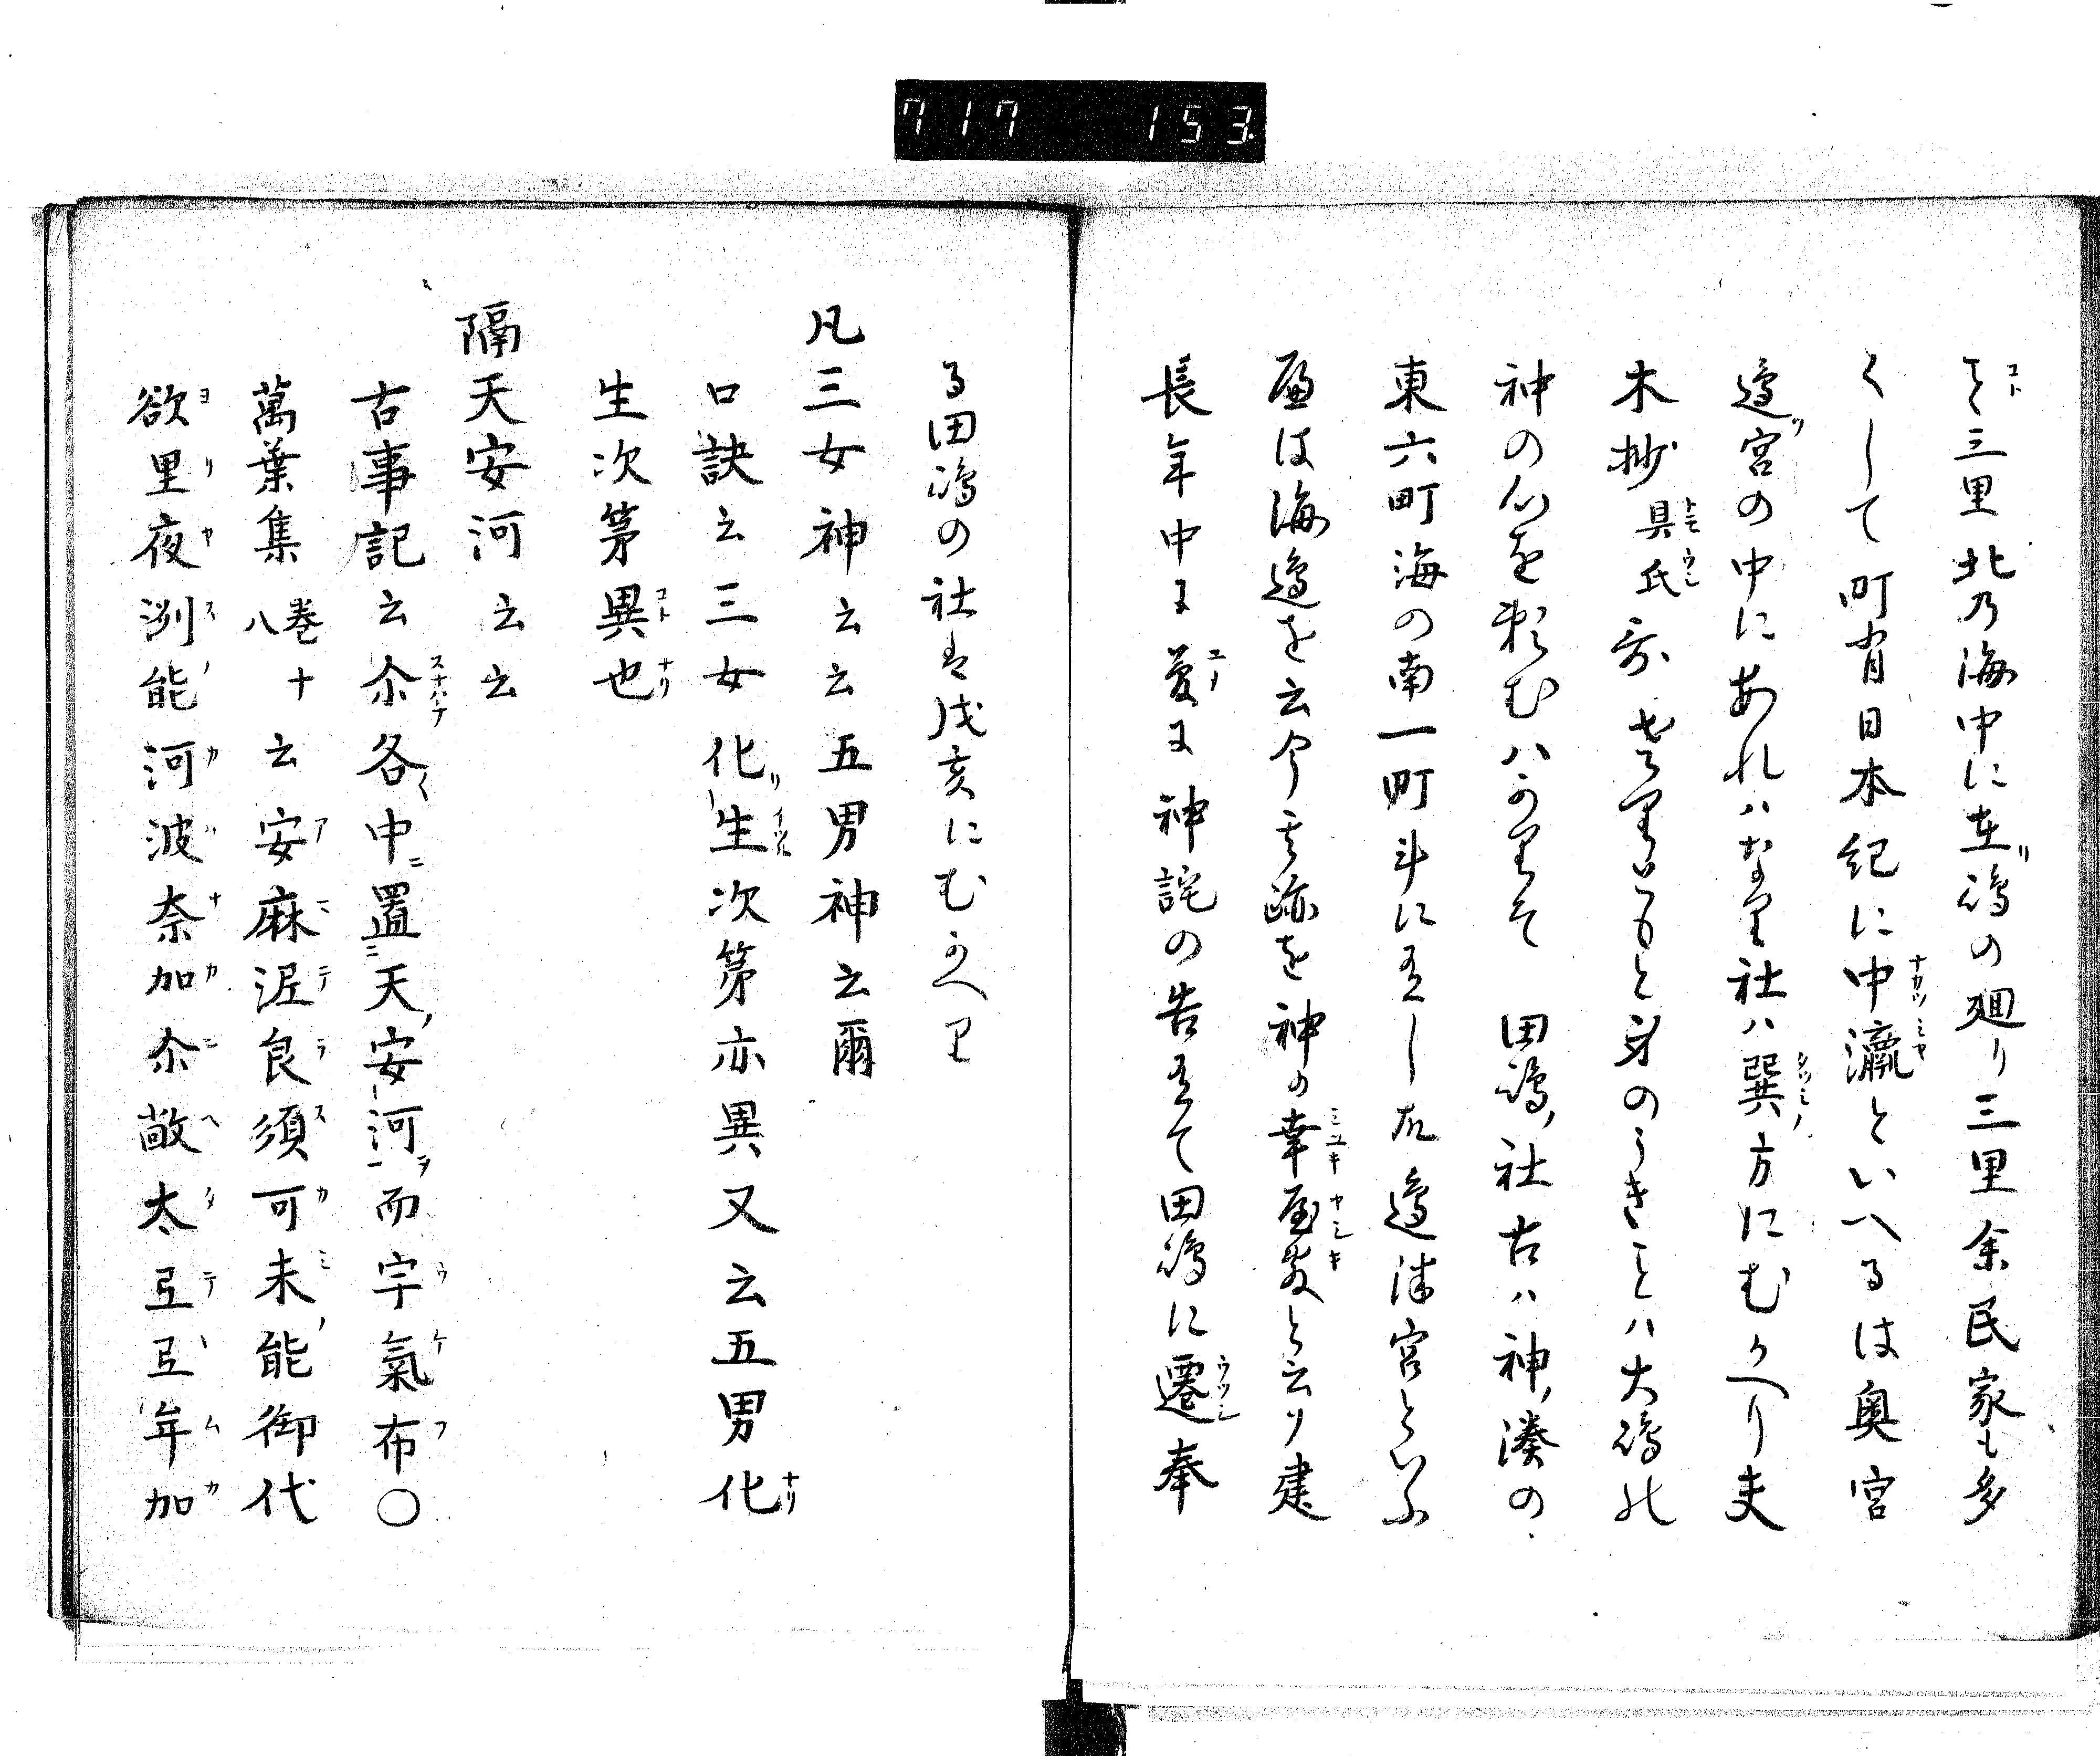 717 153
三里北乃海中に在リ嶋の廻り三里余民家も多
くして町有日本紀に中瀛といへるは奥宮
邊宮の中にあれハなり社ハ巽ノ方にむかへり夫
木抄具氏哥 も身のうきことハ大嶋の
神の心を頼むハかりそ 田嶋ノ社古ハ神ノ湊の
東六町海の南一町斗に有し故邊津宮といふ
邊は海邊を云今其跡を神の幸屋敷と云リ建
長年中に爰に神詫の告有て田嶋に遷奉
る田嶋の社は戌亥にむかへり
凡三女神云云五男神云爾
口訣云三女化生次第亦異又云五男化
生次第異也
隔天安河云云
古事記云尒各中置天安河而宇氣布〇
萬葉集巻十八云安麻泥良須可未能御代
欲里夜洲能河波奈加尒敞太弖弖牟加